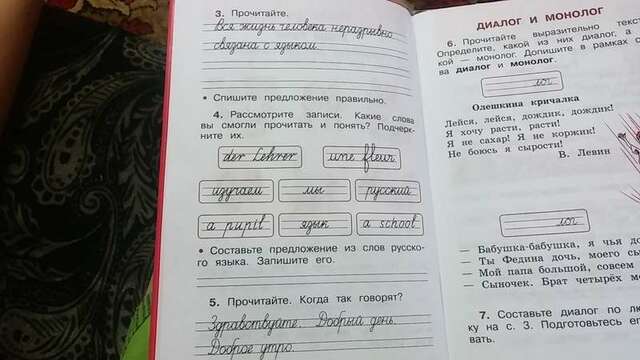 3. Прочитайте.
Вся жизнь человека неразрывно
связана с языком.
• Спишите предложение правильно.
4. Рассмотрите записи. Какие слова
вы смогли прочитать и понять? Подчерк-
ните их.
der Lehrer une fleur
изучаем мы русский
a pupil язык a school
• Составьте предложение из слов русско-
го языка. Запишите его.
5. Прочитайте. Когда так говорят?
Здравствуйте. Добрый день.
Доброе утро.
ДИАЛОГ И МОНОЛОГ
6. Прочитайте выразительно
Определите, какой из них диалог, а
кой — монолог. Допишите в рамках
ва диалог и монолог.
лог
Олешкина кричалка
Лейся, лейся, дождик, дождик!
Я хочу расти, расти!
Я не сахар! Я не коржик!
Не боюсь я сырости!
В. Левин
лог
— Бабушка-бабушка, я чья
— Ты Федина дочь, моего
— Мой папа большой, совсем
— Сыночек. Брат четырёх
7. Составьте диалог по
ку на с. 3. Подготовьтесь его
вать.